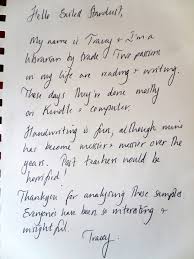 Hello Exiled Stardust,
My name is Tracey & I'm a
librarian by trade. Two passion
in my life are reading & writing.
These days they're done mostly
on Kindle & computer.
Handwriting is fun, although mine
has become messier & messier over the
years. Past teachers would be
horrified!
Thankyou for analysing these samples.
Everyone's have been so interesting &
insightful.
Tracey